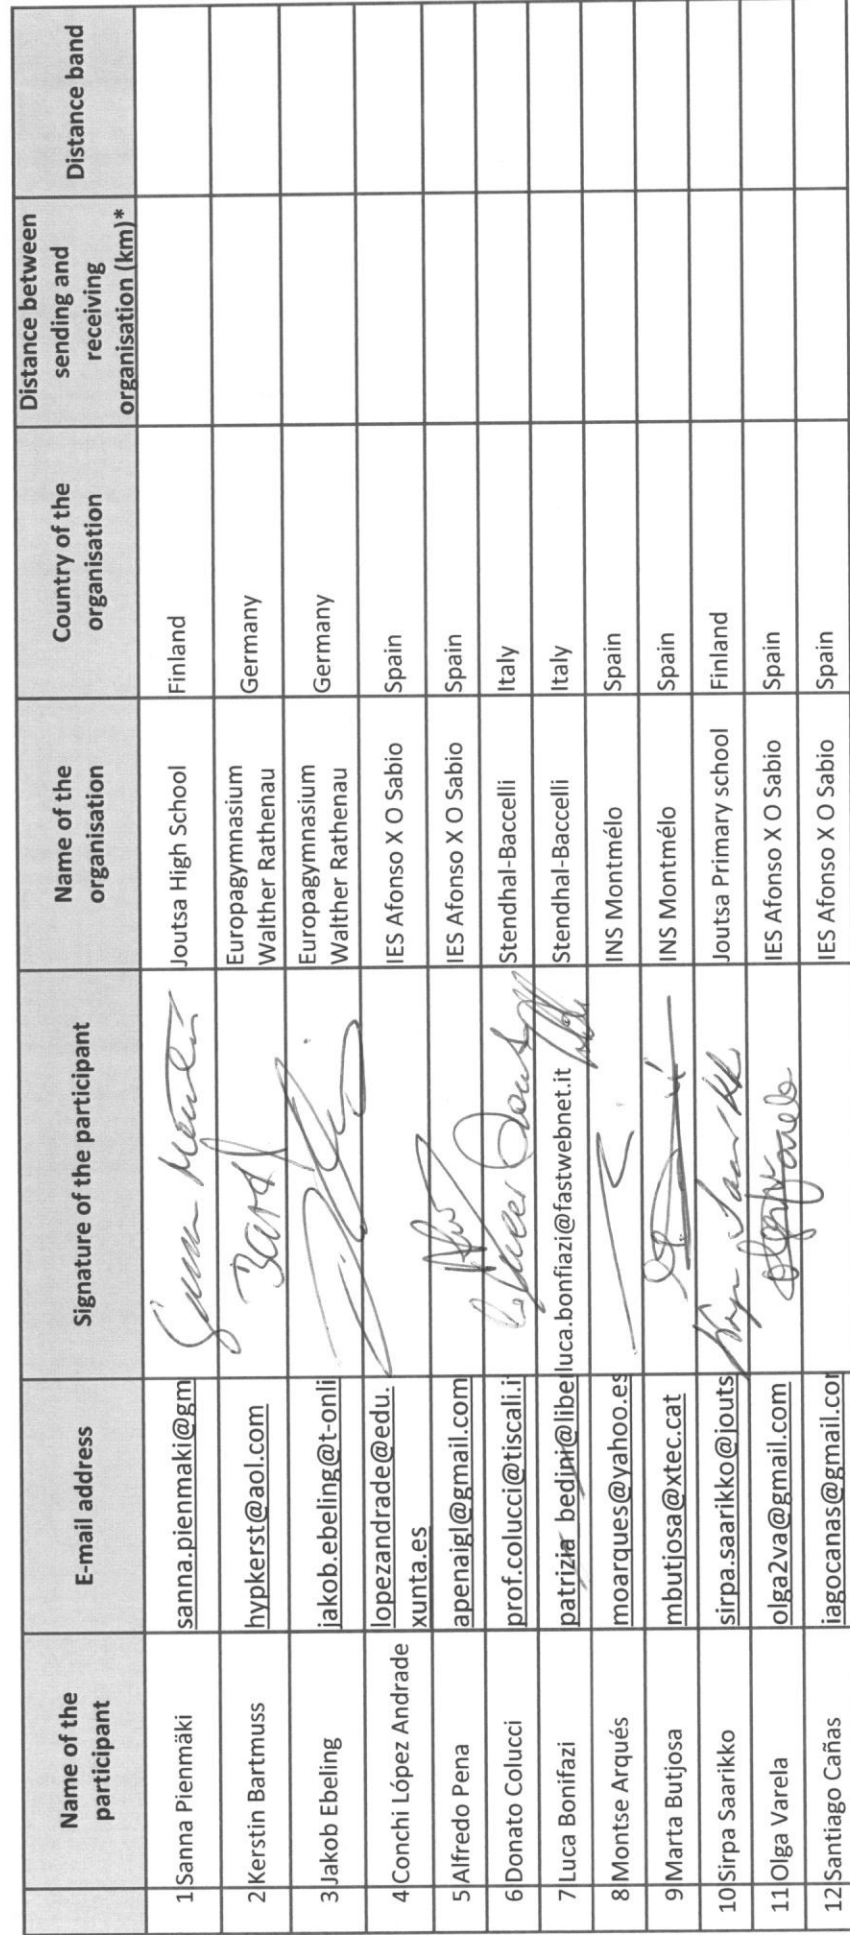 Name of the participant E-mail address Signature of the participant Name of the organisation Country of the organisation Distance between sending and receiving organisation (km)* Distance band
1 Sanna Pienmäki sanna.pienmaki@gm Joutsa High School Finland
2 Kerstin Bartmuss hypkerst@aol.com Europagymnasium Walther Rathenau Germany
3 Jakob Ebeling jakob.ebeling@t-onli Europagymnasium Walther Rathenau Germany
4 Conchi López Andrade lopezandrade@edu.xunta.es IES Afonso X O Sabio Spain
5 Alfredo Pena apenaigl@gmail.com IES Afonso X O Sabio Spain
6 Donato Colucci prof.colucci@tiscali.i Stendhal-Baccelli Italy
7 Luca Bonifazi patrizia bedini@libe luca.bonfiazi@fastwebnet.it Stendhal-Baccelli Italy
8 Montse Arqués moarques@yahoo.es INS Montmélo Spain
9 Marta Butjosa mbutjosa@xtec.cat INS Montmélo Spain
10 Sirpa Saarikko sirpa.saarikko@jouts Joutsa Primary school Finland
11 Olga Varela olga2va@gmail.com IES Afonso X O Sabio Spain
12 Santiago Cañas iagocanas@gmail.com IES Afonso X O Sabio Spain